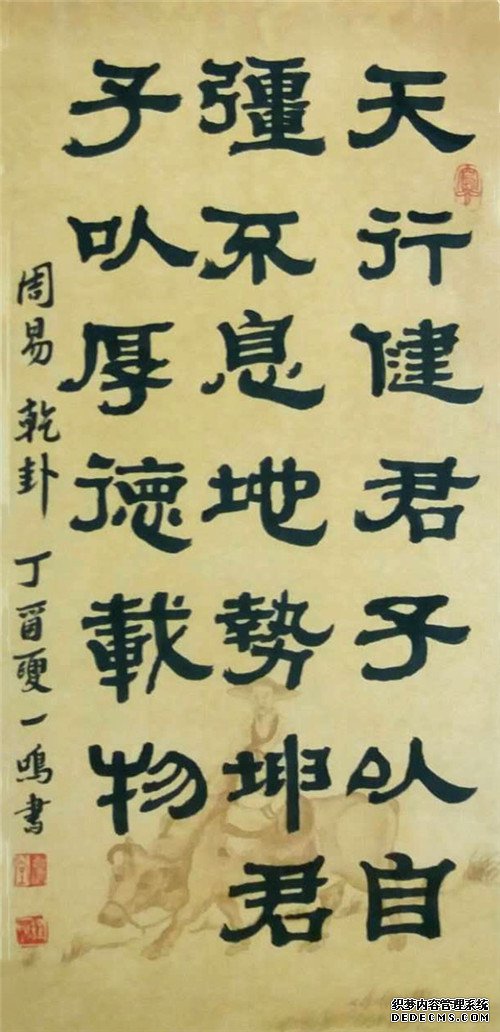 天行健君子以自
彊不息地勢坤君
子以厚德載物
周易乾卦 丁酉夏一鳴書
织梦内容管理系统
DEDECMS.COM